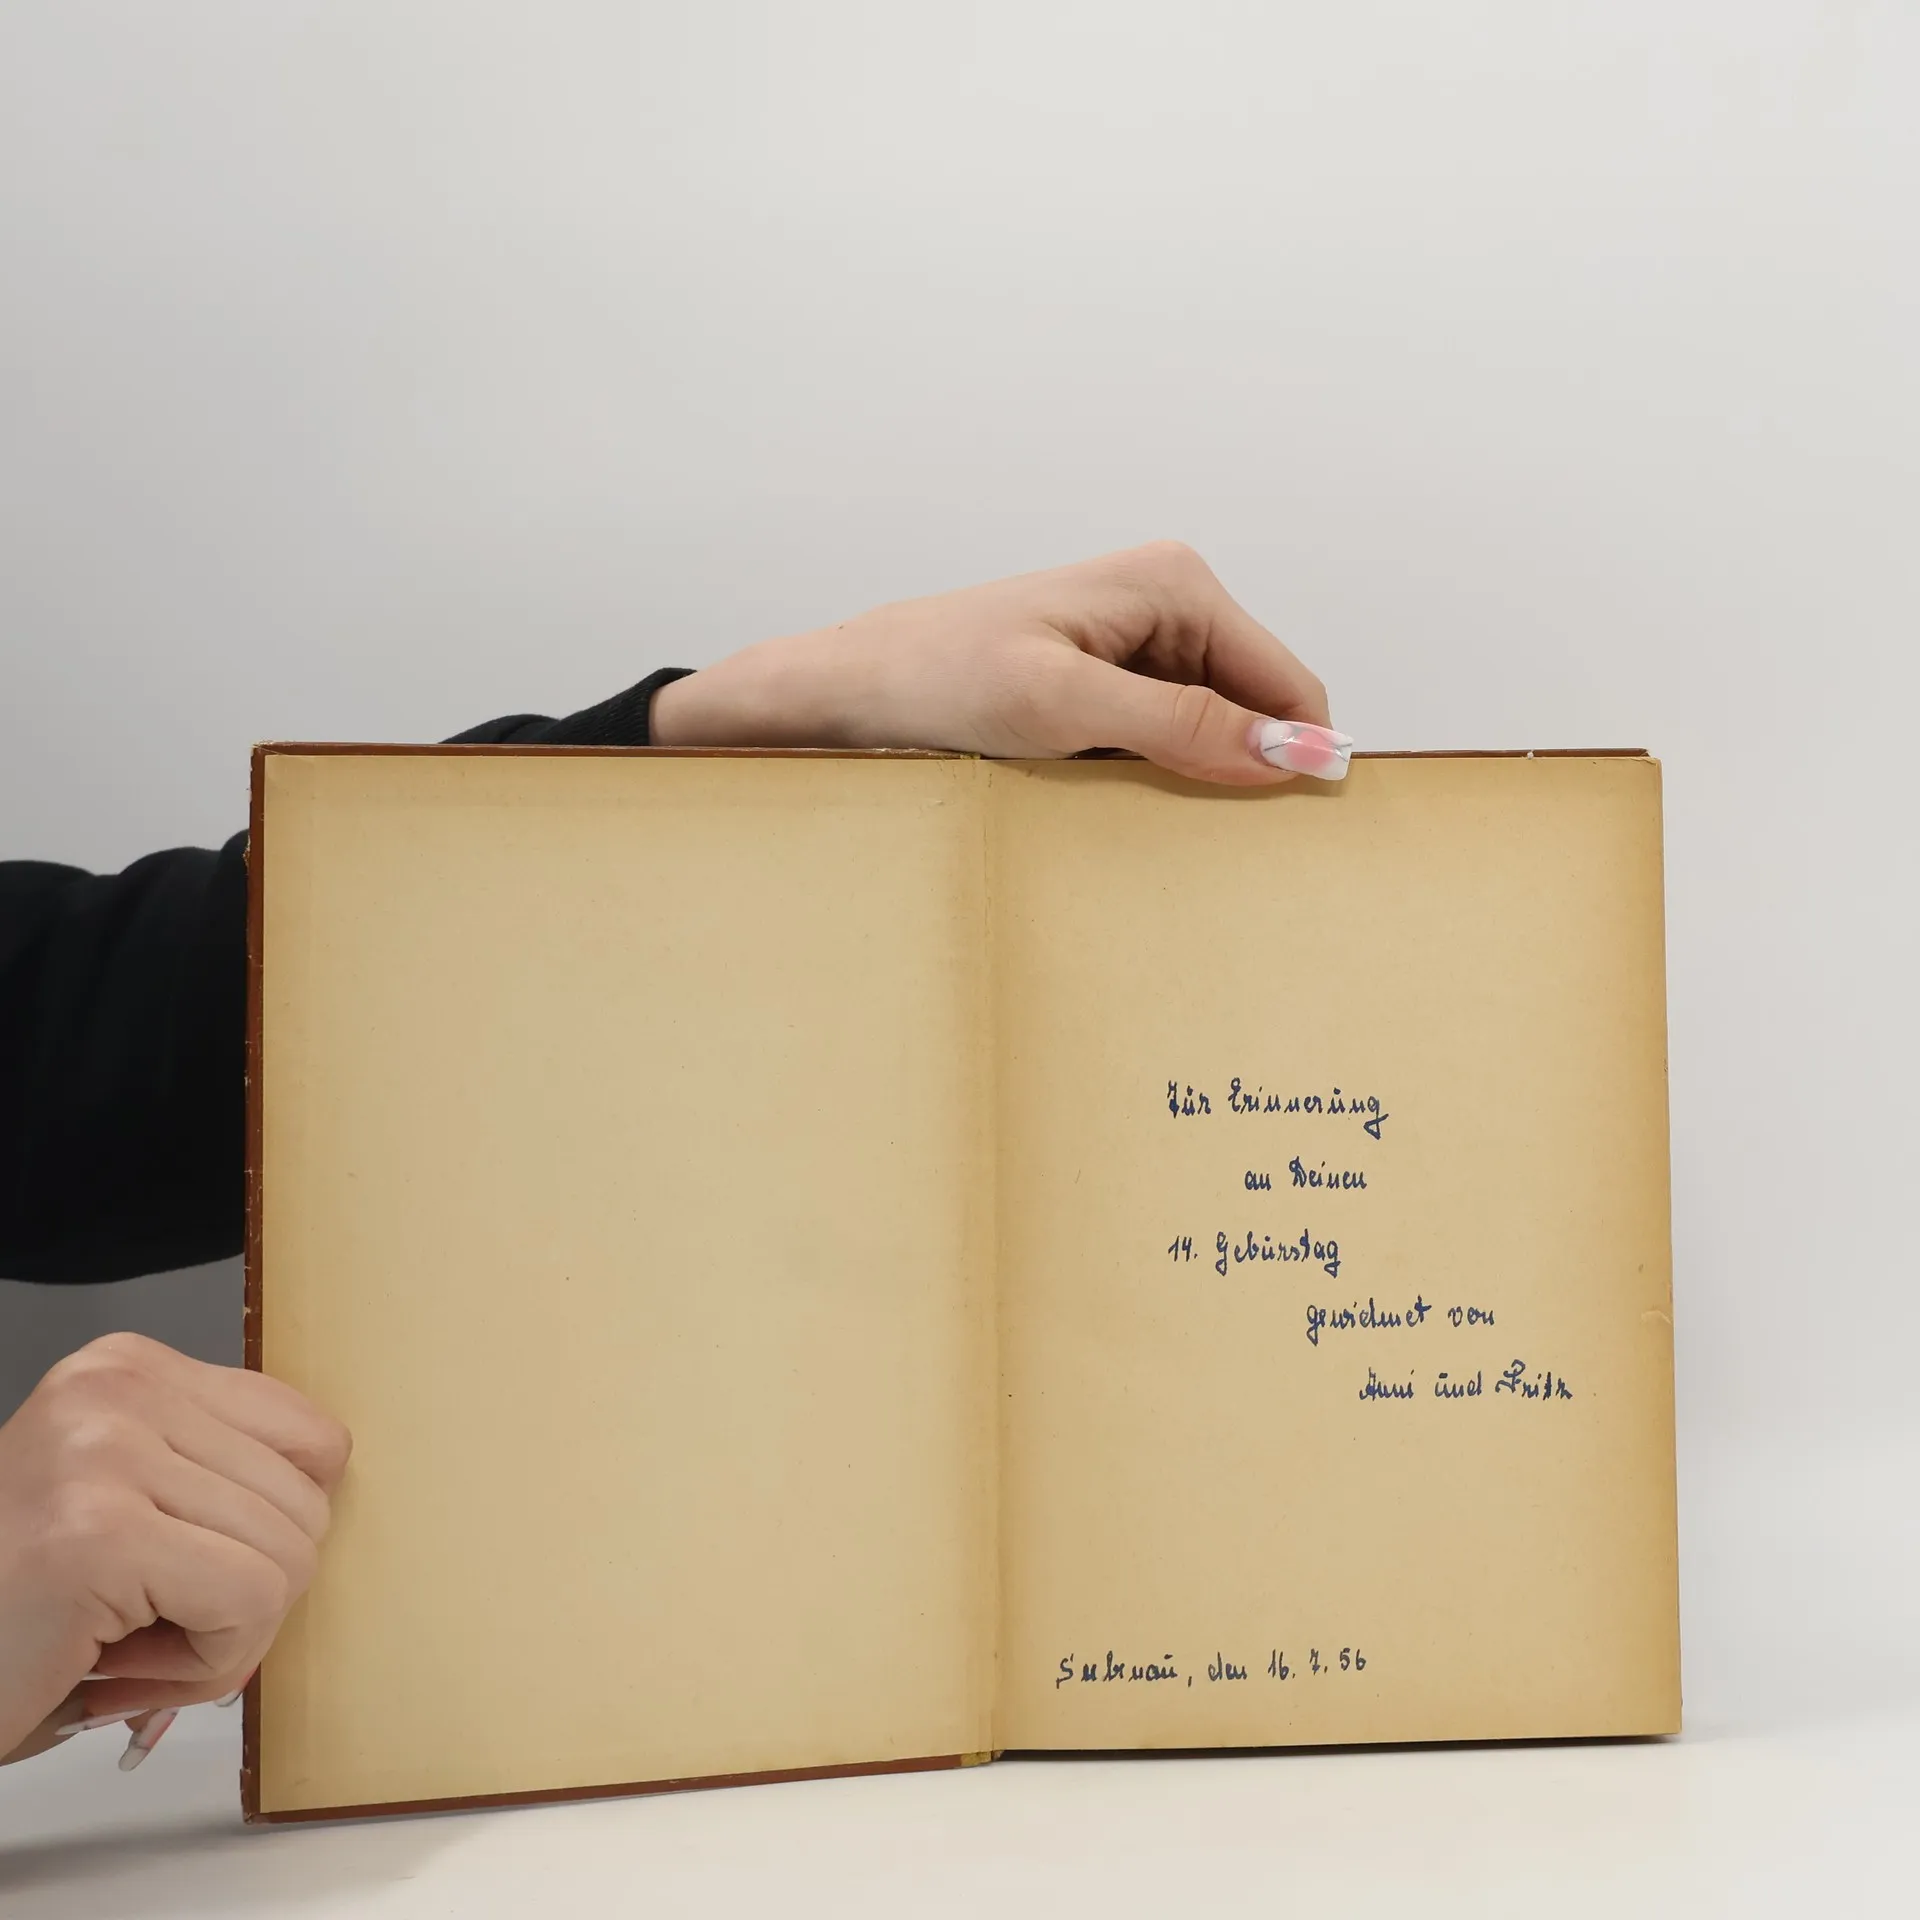 Zur Erinnerung
an Deinen
14. Geburstag
gewidmet von
Anni und Fritz
den 16. 7. 56